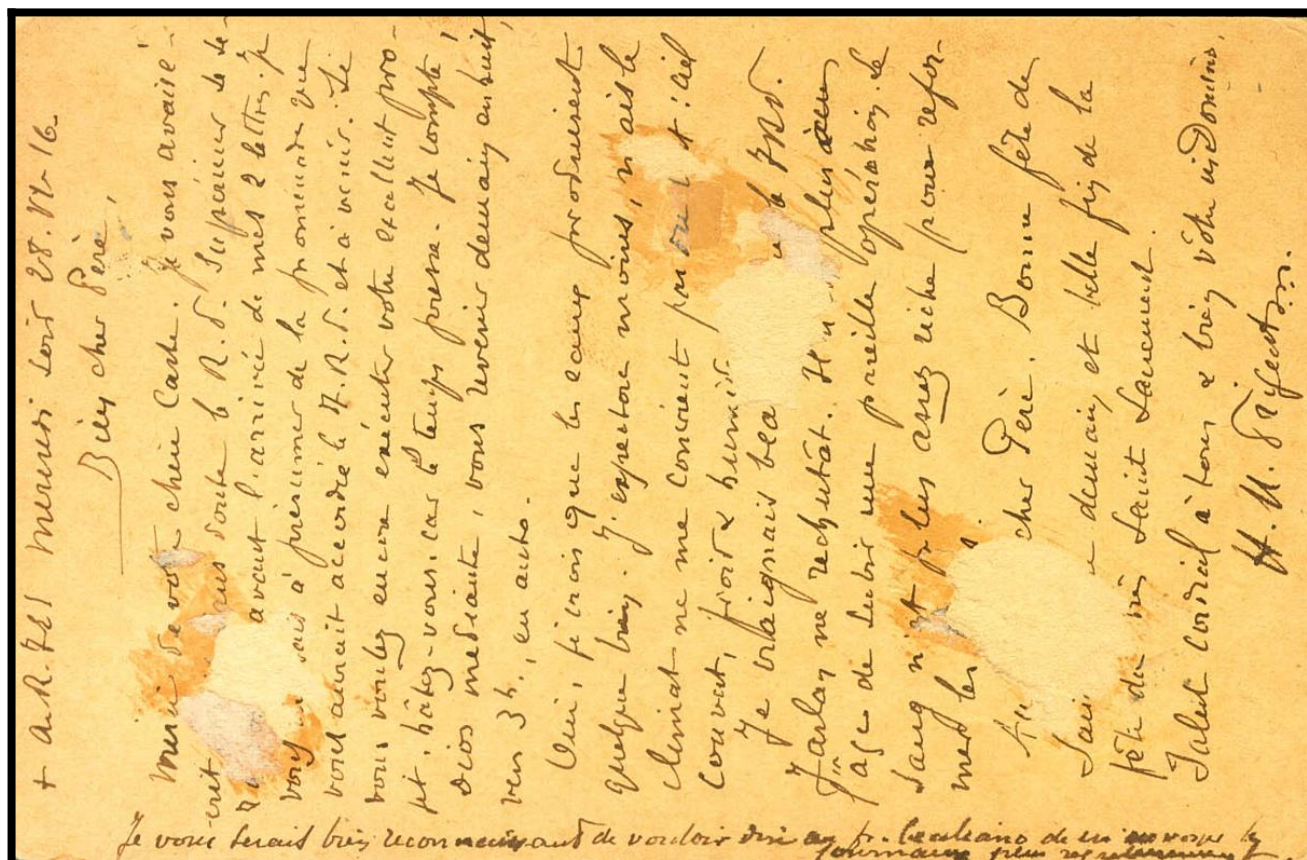 + A.R.J.S.S Mercredi soir 28. VI. 16.
Bien cher Père,
Merci de votre chère Carte. Je vous avais é-
crit sous doute le R. P. Supérieur de se-
avant l'arrivée de mes 2 lettres. Je
vous sais à présumer de la promenade que
vous aurait accordée le T. R. P. et à venir. Si
vous voulez encore exécuter votre excellent pro-
jet, hâtez-vous, car le temps presse. Je compte,
Dios mediante, vous revenir demain en huit,
vers 3 h, en auto.
Oui, je crois que les eaux produisent
quelque bien. J'expectore moins, mais le
climat ne me convient pas du t : ciel
couvert, froid & humide
Je craignais bea le P.
Jarlan ne rechutât. Il n plus à un
âge de subir une pareille opération, le
sang n'est plus assez riche pour refor-
mer les
cher Père. Bonne fête de
Sain demain, et belle fin de la
fête du très Saint Sacrement.
Salut cordial à tous & bien vôtre in Domino,
H. M.
Je vous serais bien reconnaissant de vouloir dire au fr. de m'envoyer les
journaux plus régulièrement.